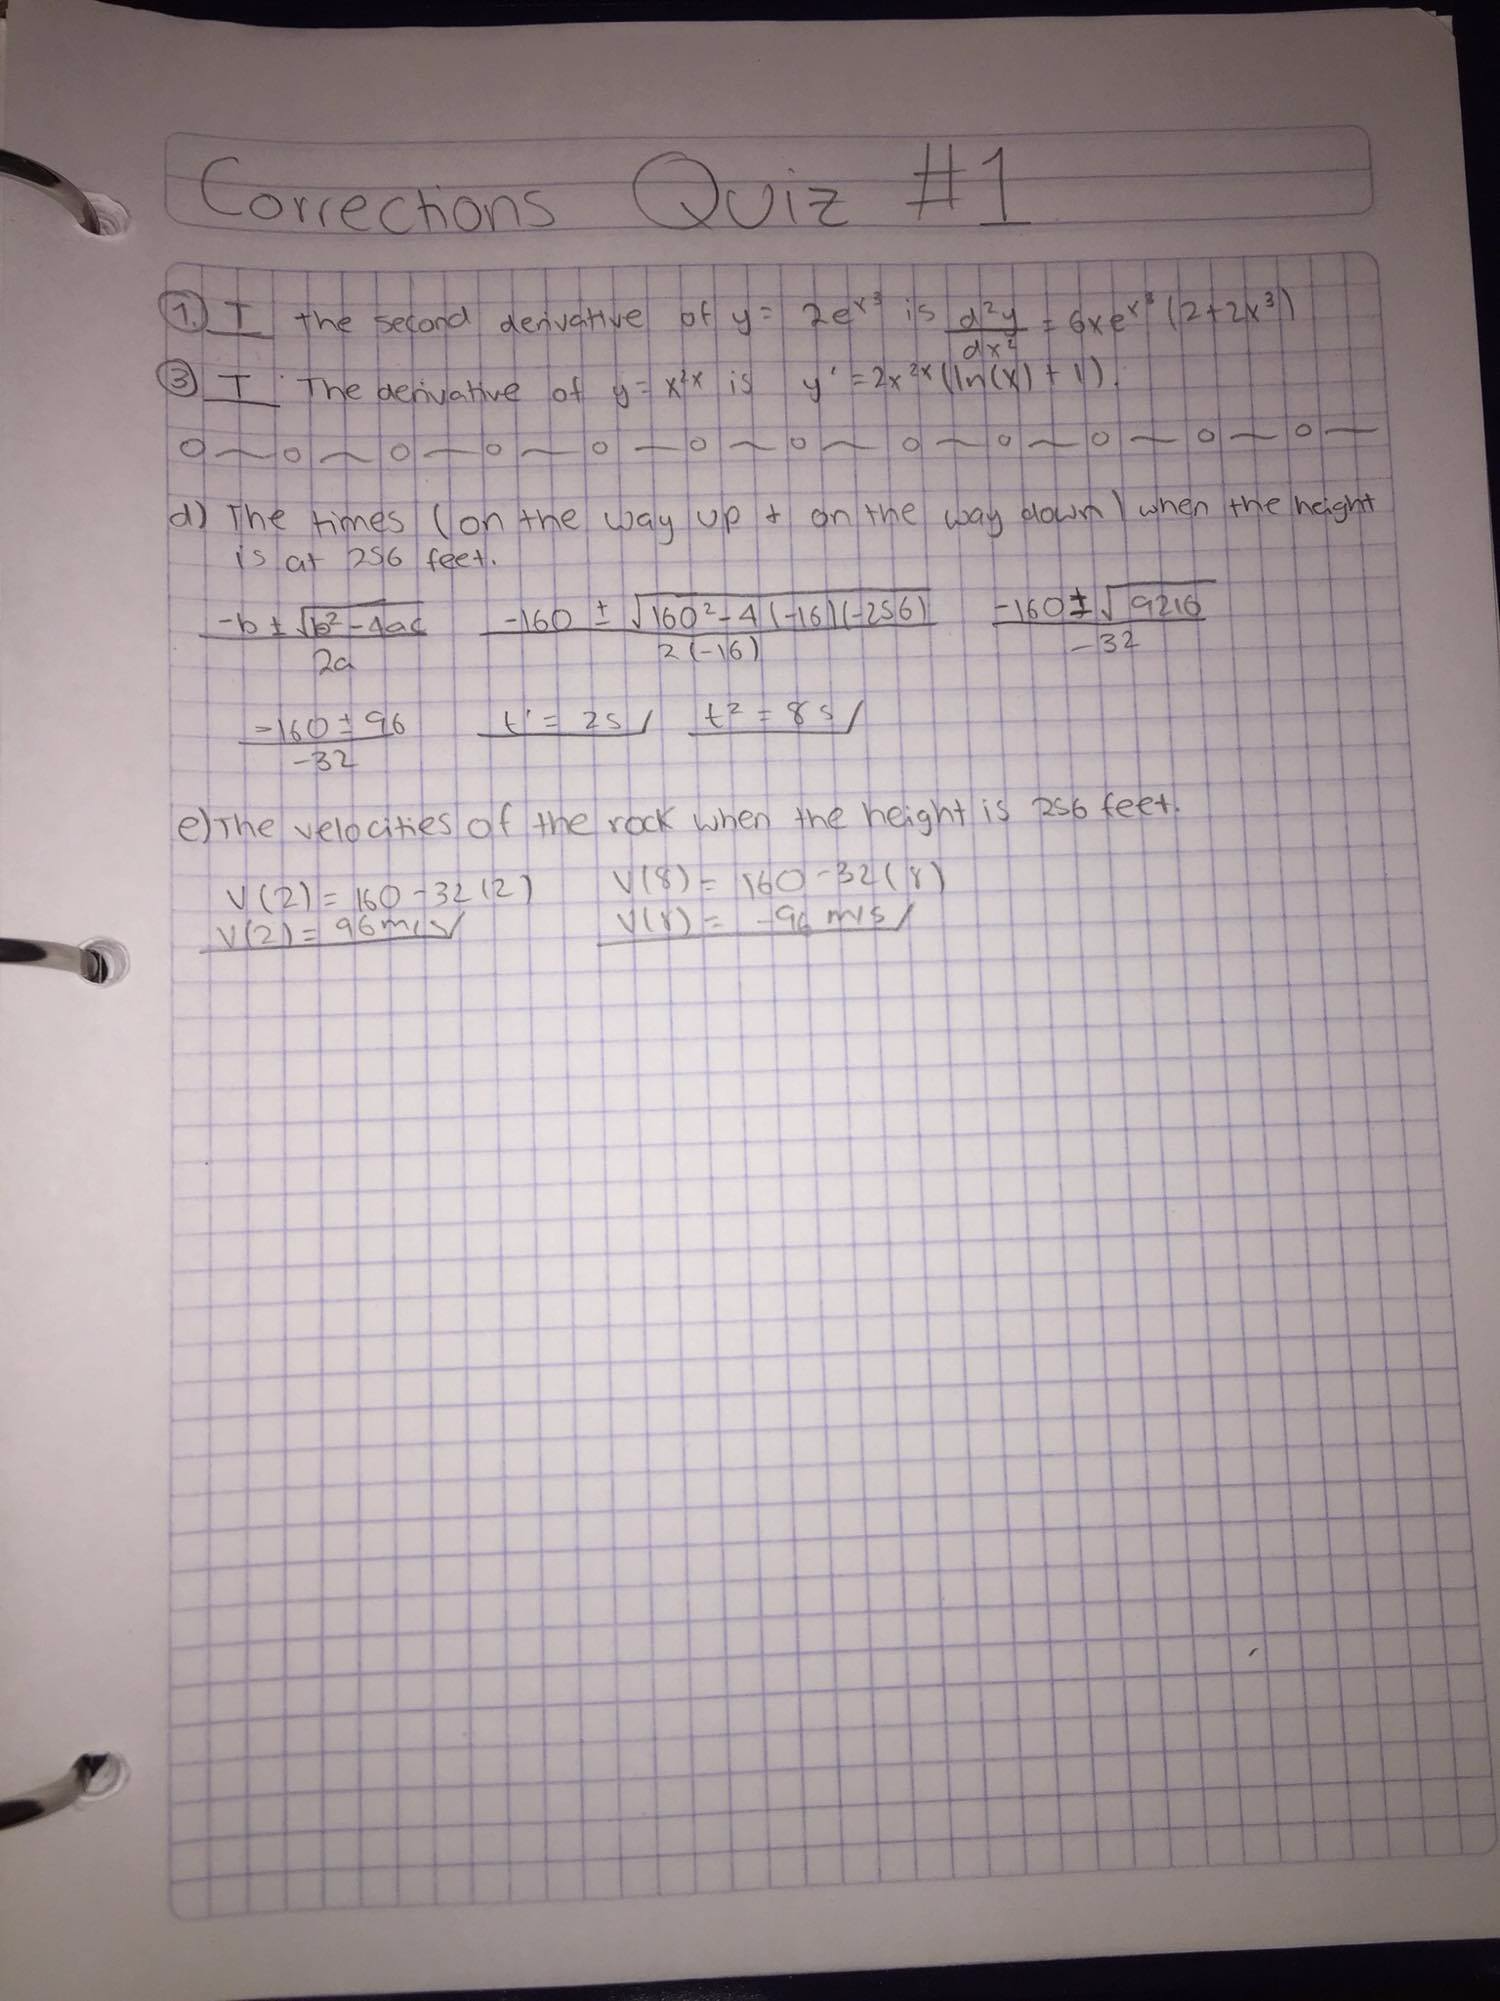 Corrections Quiz #1
1. T the second derivative of y = 2e^x^3 is d²y/dx² = 6xe^x^3 (2+2x³)
3 T The derivative of y = x^2x is y' = 2x^2x (ln(x) + 1).
d) The times (on the way up + on the way down) when the height
is at 256 feet.
-b ± √b² - 4ac / 2a -160 ± √160² - 4(-16)(-256) / 2(-16) -160 ± √9216 / -32
-160 ± 96 / -32 t¹ = 2s/ t² = 8s/
e) The velocities of the rock when the height is 256 feet.
V(2) = 160 - 32(2) V(8) = 160 - 32(8)
V(2) = 96 m/s/ V(8) = -96 m/s/